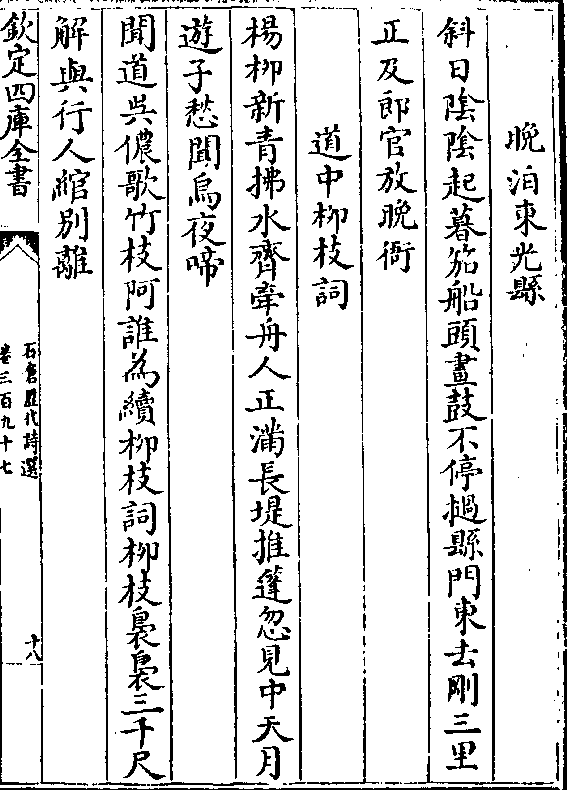 晚泊東光縣
斜日隂隂起暮笳船頭畫鼓不停撾縣門東去剛三里
正及郎官放晚衙
道中柳枝詞
楊柳新青拂水齊牽舟人正滿長堤推篷忽見中天月
遊子愁聞烏夜啼
聞道吳儂歌竹枝阿誰為續柳枝詞柳枝裊裊三千尺
解與行人綰別離
欽定四庫全書
石倉歷代詩選
卷三百九十七
十八